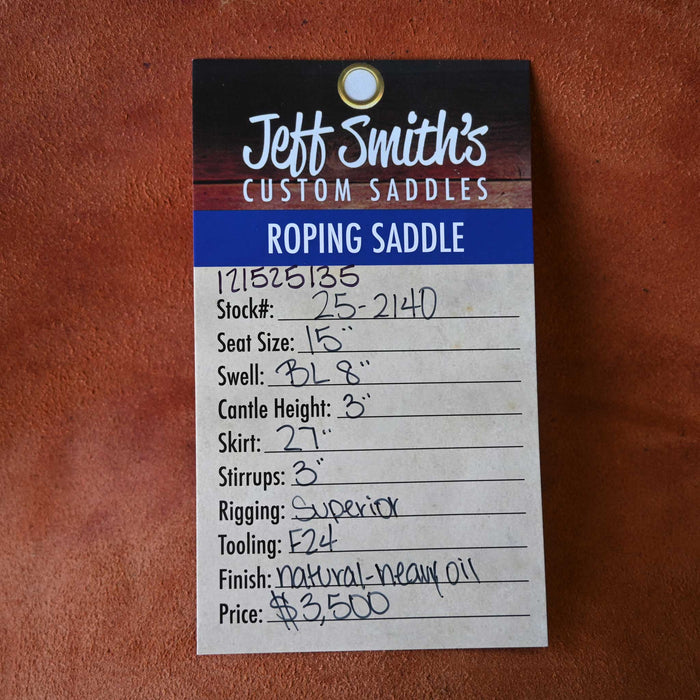 Jeff Smith's
CUSTOM SADDLES
ROPING SADDLE
121525135
Stock#: 25-2140
Seat Size: 15"
Swell: BL 8"
Cantle Height: 3"
Skirt: 27"
Stirrups: 3"
Rigging: Superior
Tooling: F24
Finish: natural-heavy oil
Price: $3,500